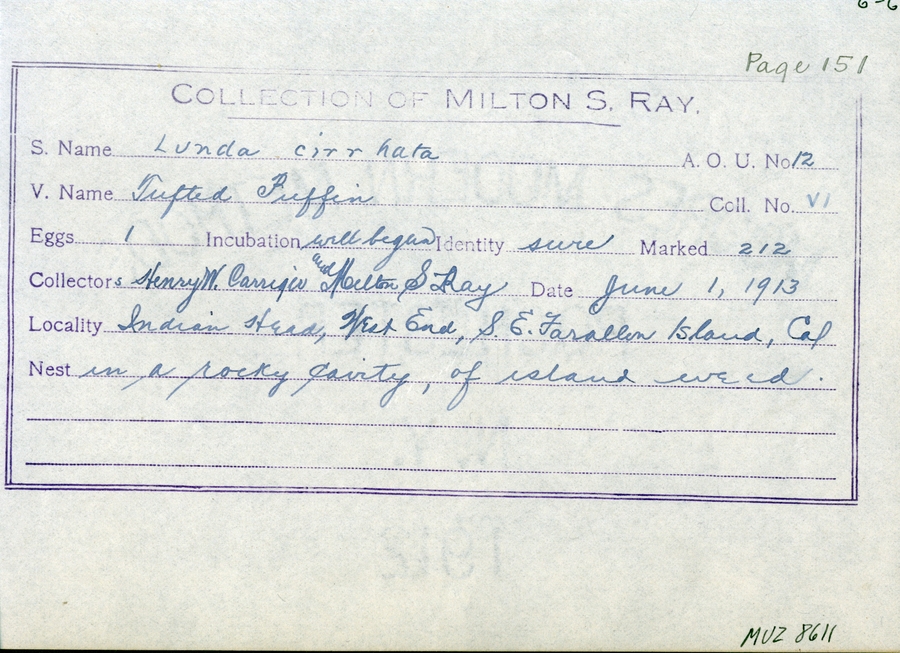 6-6
Page 151
COLLECTION OF MILTON S. RAY.
S. Name Lunda cirrhata A. O. U. No 12
V. Name Tufted Puffin Coll. No. VI
Eggs 1 Incubation well began Identity sure Marked 212
Collectors Henry W. Carriger and Milton S Ray Date June 1, 1913
Locality Indian Head, West End, S. E. Farallon Island, Cal
Nest in a rocky cavity, of island weed.
MVZ 8611